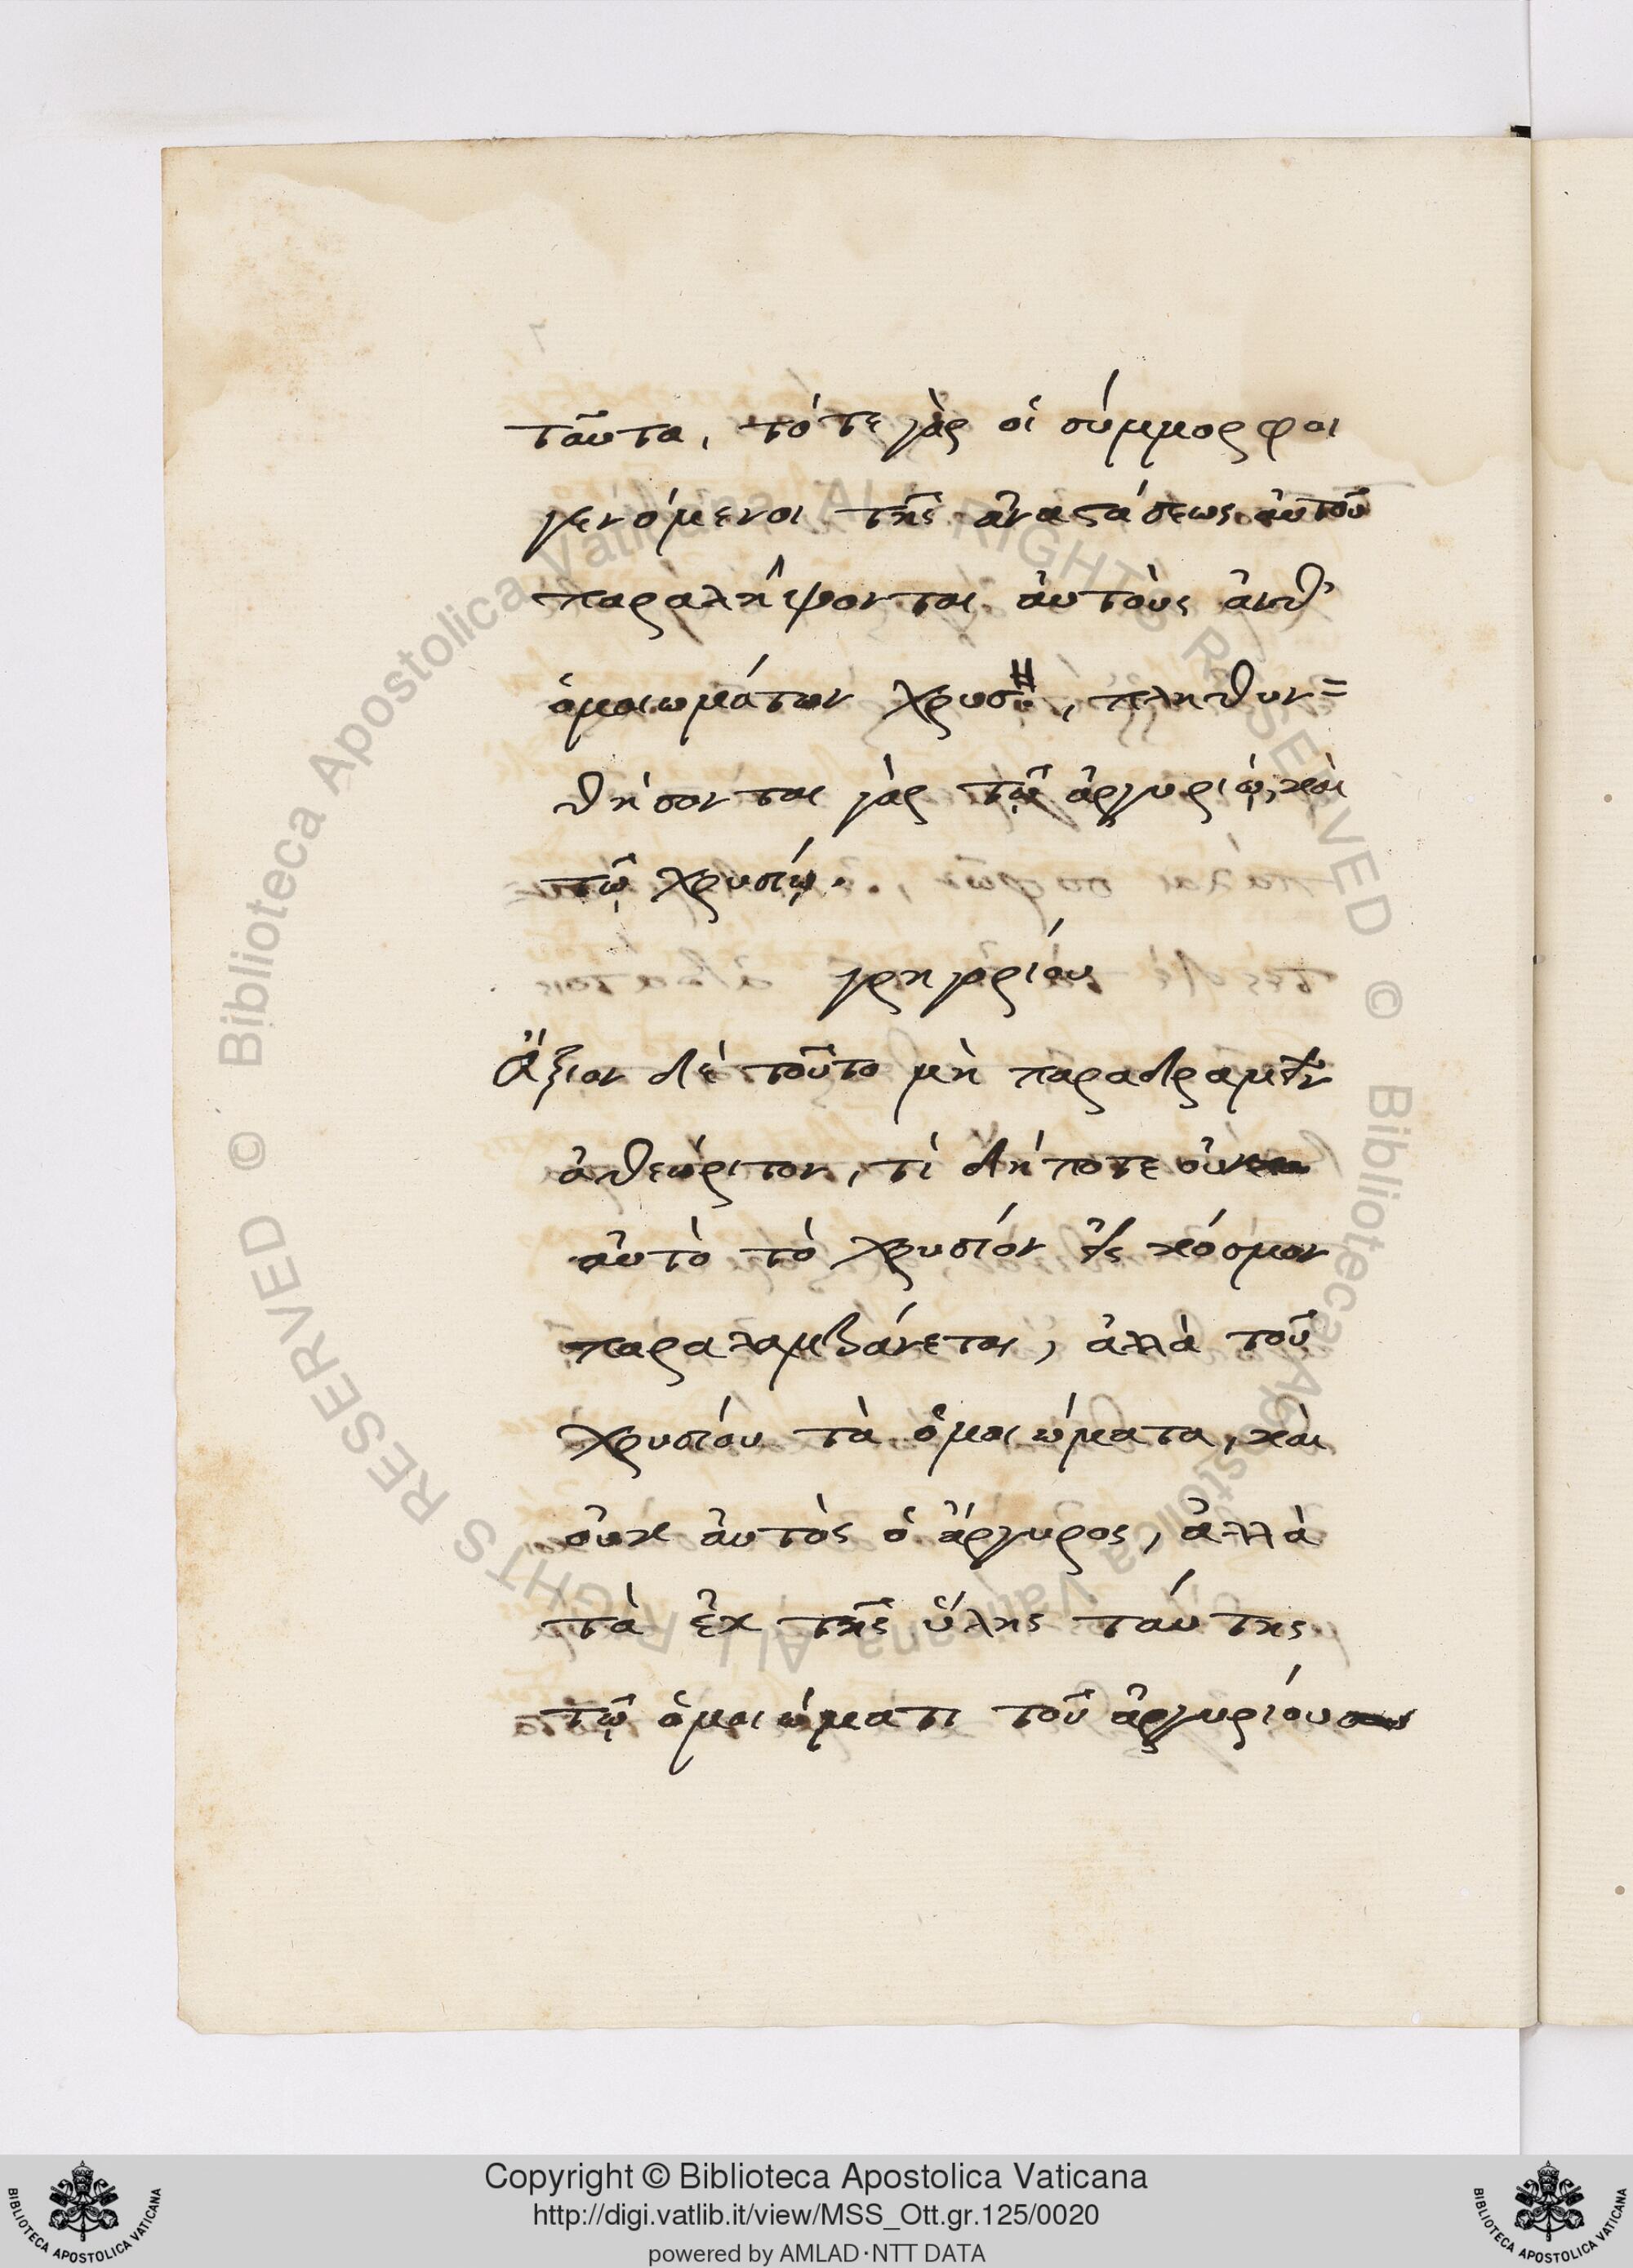 ταῦτα, τότε γὰρ οἱ σύμμορφοι
γενόμενοι τῆς ἀναστάσεως αὐτοῦ
παραλήψονται αὐτοὺς ἀνθ'
ὁμοιωμάτων χρυσ, πληθυν=
θήσονται γὰρ τῷ ἀργυρίῳ, καὶ
τῷ χρυσίῳ.
γρηγορίου
Ἄξιον δὲ τοῦτο μὴ παραδραμεῖν
ἀθεώριτον, τί δήποτε οὐκ
αὐτὸ τὸ χρυσίον εἰς κόσμον
παραλαμβάνεται, ἀλλὰ τοῦ
χρυσίου τὰ ὁμοιώματα, καὶ
οὐκ αὐτὸς ὁ ἄργυρος, ἀλλὰ
τὰ ἐκ τῆς ὕλης ταύτης
τῷ ὁμοιώματι τοῦ ἀργυρίου
© Biblioteca Apostolica Vaticana ALL RIGHTS RESERVED © Biblioteca Apostolica Vaticana ALL RIGHTS RESERVED
Copyright © Biblioteca Apostolica Vaticana
http://digi.vatlib.it/view/MSS_Ott.gr.125/0020
powered by AMLAD·NTT DATA
BIBLIOTECA APOSTOLICA VATICANA
BIBLIOTECA APOSTOLICA VATICANA